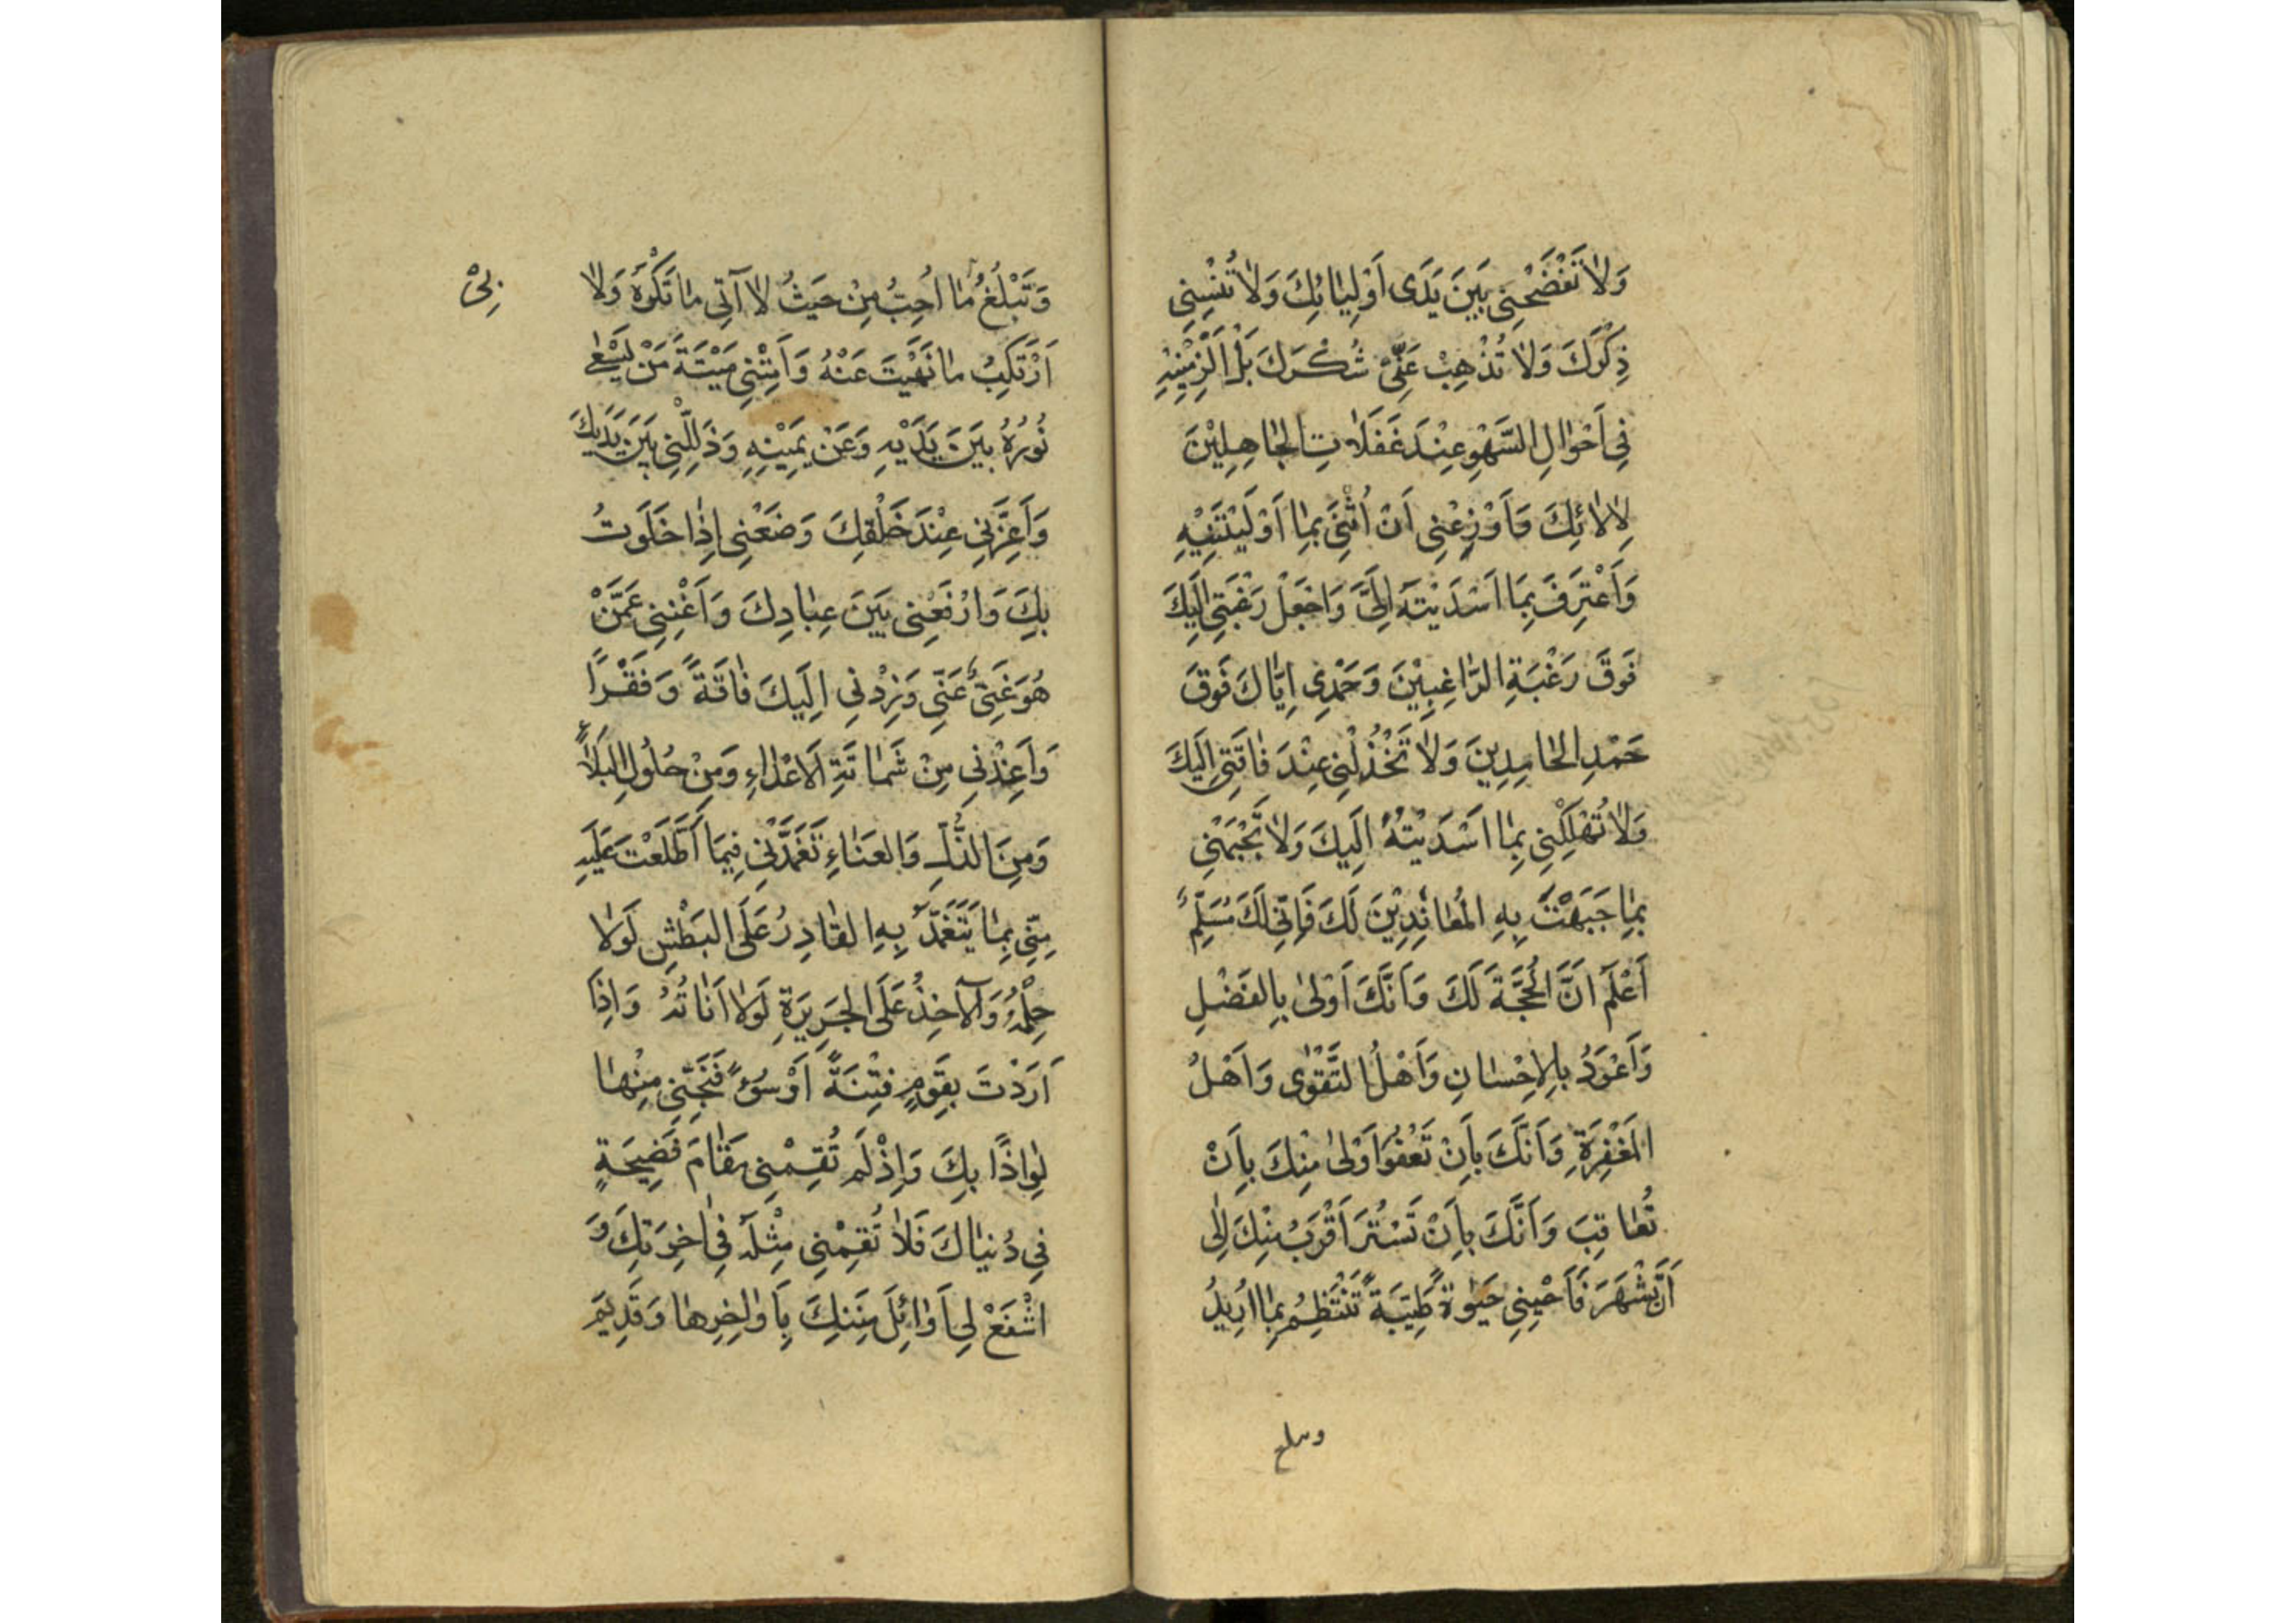 وَلَا تَفْضَحْنِي بَيْنَ يَدَى أَوْلِيَائِكَ وَلَا تُنْسِنِي
ذِكْرَكَ وَلَا تُذْهِبْ عَنِّى شُكْرَكَ بَلْ اَلْزِمْنِيهِ
فِي اَحْوَالِ السَّهْوِ عِنْدَ غَفَلَاتِ الْجَاهِلِيْنَ
لِاٰلَائِكَ وَاَوْزِعْنِي اَنْ اُثْنِىَ بِمَا اَوْلَيْتَنِيْهِ
وَاَعْتَرِفَ بِمَا اَسْدَيْتَهُ اِلَىَّ وَاجْعَلْ رَغْبَتِي اِلَيْكَ
فَوْقَ رَغْبَةِ الرَّاغِبِيْنَ وَحَمْدِي اِيَّاكَ فَوْقَ
حَمْدِ الْحَامِدِينَ وَلَا تَخْذُلْنِي عِنْدَ فَاقَتِي اِلَيْكَ
وَلَا تُهْلِكْنِي بِمَا اَسْدَيْتُهُ اِلَيْكَ وَلَا تَجْبَهْنِي
بِمَا جَبَهْتَ بِهِ الْمُعَانِدِيْنَ لَكَ فَاِنِّي لَكَ مُسَلِّمٌ
اَعْلَمُ اَنَّ الْحُجَّةَ لَكَ وَاَنَّكَ اَوْلَىٰ بِالْفَضْلِ
وَاَعْوَدُ بِالْاِحْسَانِ وَاَهْلُ التَّقْوٰى وَاَهْلُ
الْمَغْفِرَةِ وَاَنَّكَ بِاَنْ تَعْفُوَ اَوْلىٰ مِنْكَ بِاَنْ
تُعَاقِبَ وَاَنَّكَ بِاَنْ تَسْتُرَ اَقْرَبُ مِنْكَ اِلىٰ
اَنْ تَشْهَرَ فَاَحْيِنِي حَيٰوةً طَيِّبَةً تَنْتَظِمُ بِمَا اُرِيدُ
وتبلغ
وَتَبْلُغُ مَا اُحِبُّ مِنْ حَيْثُ لَا آتِي مَا تَكْرَهُ وَلَا
اَرْتَكِبُ مَا نَهَيْتَ عَنْهُ وَاَمِتْنِي مَيْتَةَ مَنْ يَسْعٰى
نُوْرُهُ بَيْنَ يَدَيْهِ وَعَنْ يَمِيْنِهِ وَذَلِّلْنِي بَيْنَ يَدَيْكَ
وَاَعِزَّنِي عِنْدَ خَلْقِكَ وَضَعْنِي اِذَا خَلَوْتُ
بِكَ وَارْفَعْنِى بَيْنَ عِبَادِكَ وَاَغْنِنِي عَمَّنْ
هُوَ غَنِىٌّ عَنِّي وَزِدْنِي اِلَيْكَ فَاقَةً وَفَقْرًا
وَاَعِذْنِي مِنْ شَمَاتَةِ الْاَعْدَاءِ وَمِنْ حُلُولِ الْبَلَاءِ
وَمِنَ الذُّلِّ وَالعَنَاءِ تَغَمَّدْنِي فِيمَا اَطَّلَعْتَ عَلَيْهِ
مِنِّي بِمَا يَتَغَمَّدُ بِهِ القَادِرُ عَلَى البَطْشِ لَوْلَا
حِلْمُهُ وَالْآخِذُ عَلَى الْجَرِيرَةِ لَوْلَا اَنَاتُهُ وَاِذَا
اَرَدْتَ بِقَوْمٍ فِتْنَةً اَوْ سُوْءً فَنَجِّنِي مِنْهَا
لِوَاذًا بِكَ وَاِذْ لَمْ تُقِمْنِي مَقَامَ فَضِيحَةٍ
فِي دُنْيَاكَ فَلَا تُقِمْنِي مِثْلَهُ فِي اٰخِرَتِكَ وَ
اشْفَعْ لِي اَوَائِلَ مِنَنِكَ بِاَوَاخِرِهَا وَقَدِيمَ